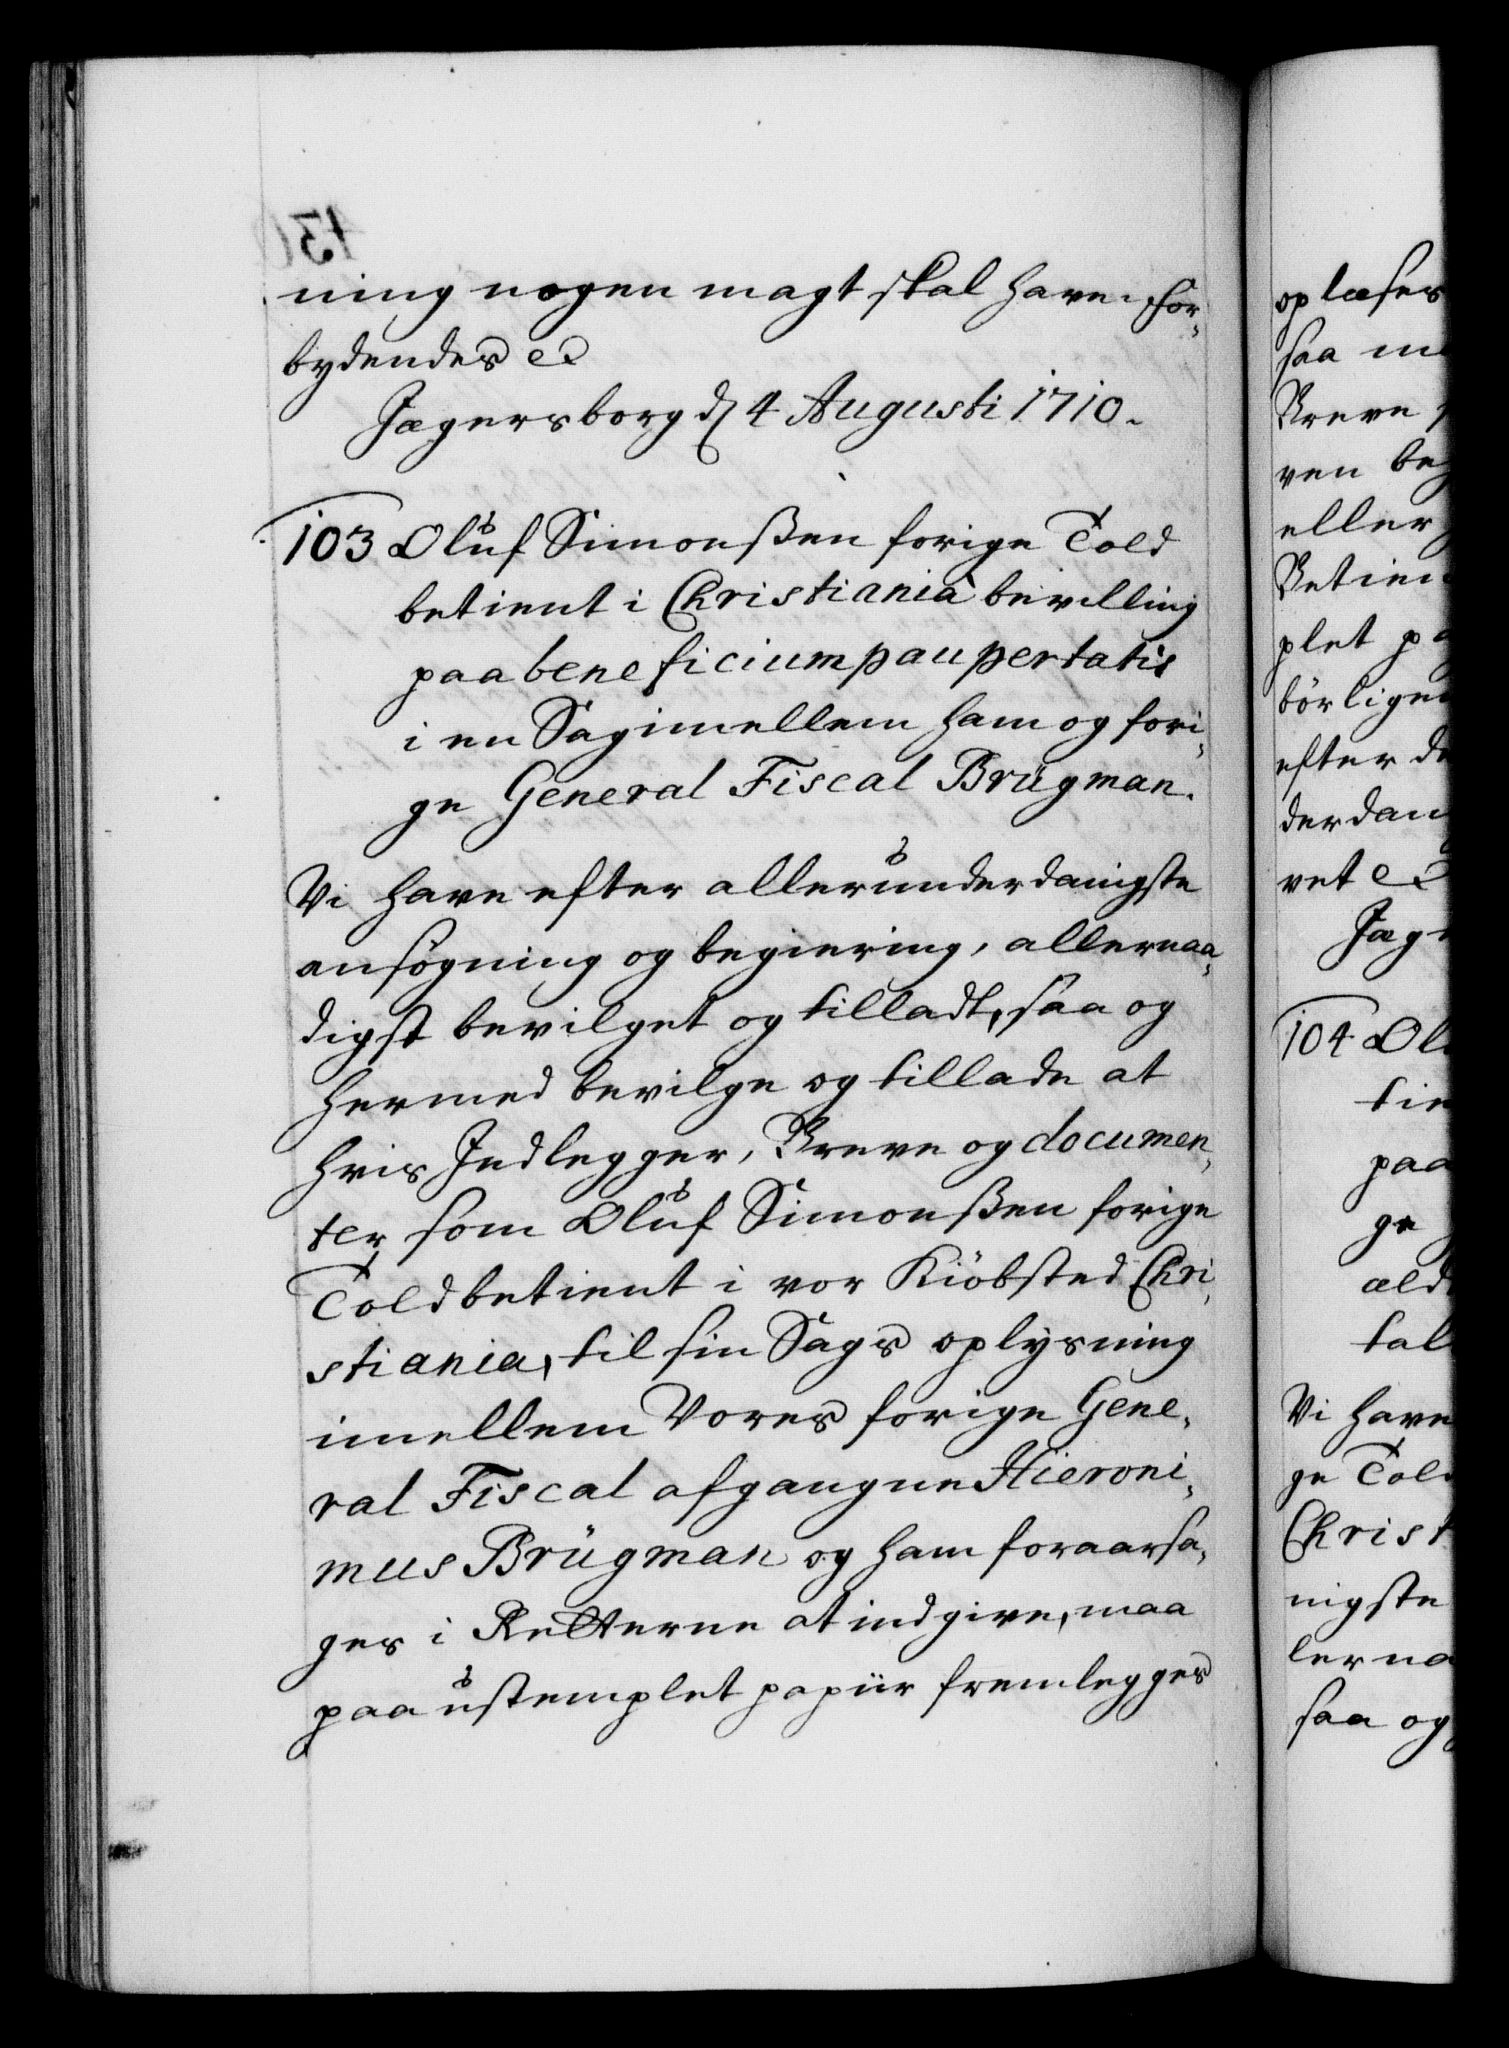 ning nogen magt skal have. for-
bydendes etc
Jægersborg d 4 Augusti 1710.
103 Oluf Simonßen forige Told
betient i Christiania bevilling
paa beneficium paupertatis
i en Sag imellem ham og fori-
ge General Fiscal Brügman.
Vi have efter allerunderdanigste
ansøgning og begiering, allernaa-
digst bevilget og tilladt, saa og
hermed bevilge og tillade at
hvis Indlegger, Breve og documen-
ter som Oluf Simonßen forige
Toldbetient i vor Kiöbsted Chri-
stiania, til sin Sags oplysning
imellem Vores forige Gene-
ral Fiscal afgangne Hieroni-
mus Brügman og ham foraarsa-
ges i Retterne at indgive, maa
paa ustemplet papiir fremlegges
oplæses
saa m
Breve
ven be
eller
Betien
plet p
börlige
efter de
derdan
vet etc
Jæg
104 Ol
tie
paa
ge
æld
tal
Vi have
ge Tol
Christ
nigste
lerna
saa og